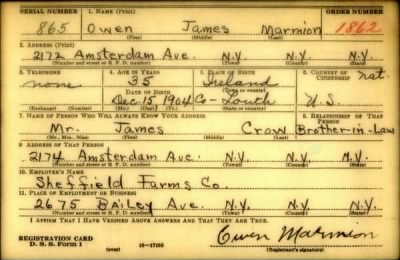 SERIAL NUMBER 1. NAME (Print) ORDER NUMBER
865 Owen James Marmion 1862
(First) (Middle) (Last)
2. ADDRESS (Print)
2172 Amsterdam Ave. N.Y. N.Y. N.Y.
(Number and street or R. F. D. number) (Town) (County) (State)
3. TELEPHONE 4. AGE IN YEARS 5. PLACE OF BIRTH 6. COUNTRY OF CITIZENSHIP
none 35 Ireland nat.
DATE OF BIRTH (Town or county)
Dec. 15, 1904 Co-Louth U.S.
(Exchange) (Number) (Mo.) (Day) (Yr.) (State or country)
7. NAME OF PERSON WHO WILL ALWAYS KNOW YOUR ADDRESS 8. RELATIONSHIP OF THAT PERSON
Mr. James Crow Brother-in-Law
(Mr., Mrs., Miss) (First) (Middle) (Last)
9. ADDRESS OF THAT PERSON
2174 Amsterdam Ave. N.Y. N.Y. N.Y.
(Number and street or R. F. D. number) (Town) (County) (State)
10. EMPLOYER'S NAME
Sheffield Farms Co.
11. PLACE OF EMPLOYMENT OR BUSINESS
2675 Bailey Ave. N.Y. N.Y. N.Y.
(Number and street or R. F. D. number) (Town) (County) (State)
I AFFIRM THAT I HAVE VERIFIED ABOVE ANSWERS AND THAT THEY ARE TRUE.
REGISTRATION CARD
D. S. S. Form 1 (over) 16-17105 Owen Marmion
(Registrant's signature)